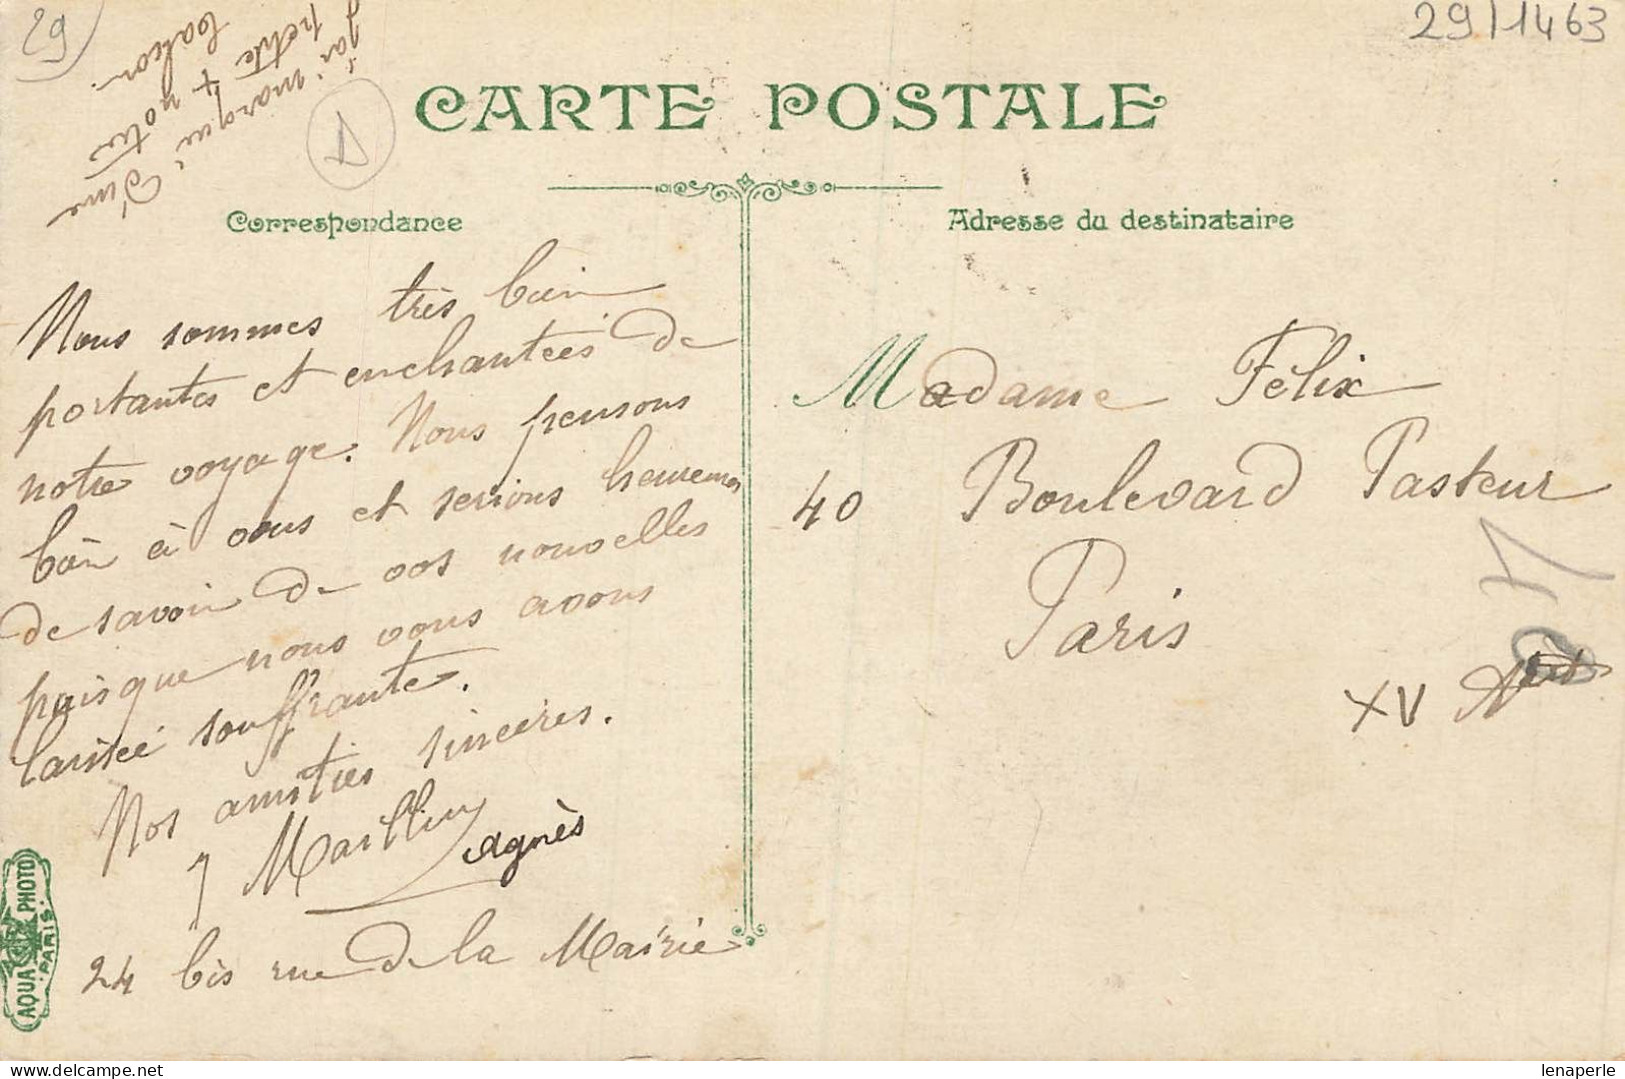 29
29/1463
j'ai marqué d'une
petite + notre
balcon.
A
CARTE POSTALE
Correspondance
Adresse du destinataire
Nous sommes très bien
portantes et enchantées de
notre voyage. Nous pensons
bien à vous et serions heureuses
de savoir de vos nouvelles
puisque nous vous avons
laissée souffrante.
Nos amitiés sincères.
J Mailling
agnès
24 bis rue de la Mairie
Madame Félix
40 Boulevard Pasteur
Paris
XV
AQUA PHOTO
PARIS
lenaperle